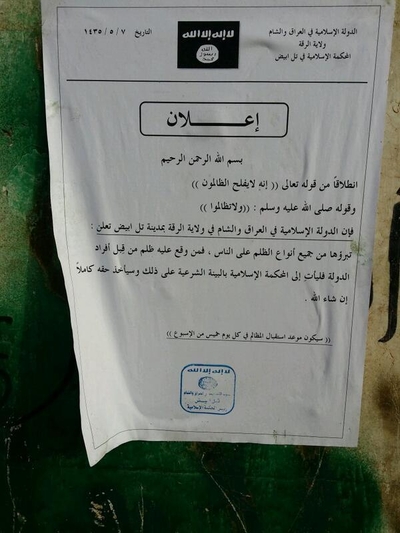 الدولة الإسلامية في العراق والشام
ولاية الرقة
المحكمة الإسلامية في تل ابيض
لا إله إلا الله
الله
رسول
محمد
التاريخ ٧ / ٥ / ١٤٣٥
إعـــلان
بسم الله الرحمن الرحيم
انطلاقاً من قوله تعالى (( إنه لايفلح الظالمون ))
وقوله صلى الله عليه وسلم : ((ولاتظالموا ))
فإن الدولة الإسلامية في العراق والشام في ولاية الرقة بمدينة تل ابيض تعلن :
تبرؤها من جميع أنواع الظلم على الناس ، فمن وقع عليه ظلم من قبل أفراد
الدولة فليأت إلى المحكمة الإسلامية بالبينة الشرعية على ذلك وسيأخذ حقه كاملاً
إن شاء الله .
(( سيكون موعد استقبال المظالم في كل يوم خميس من الإسبوع ))
لا إله إلا الله